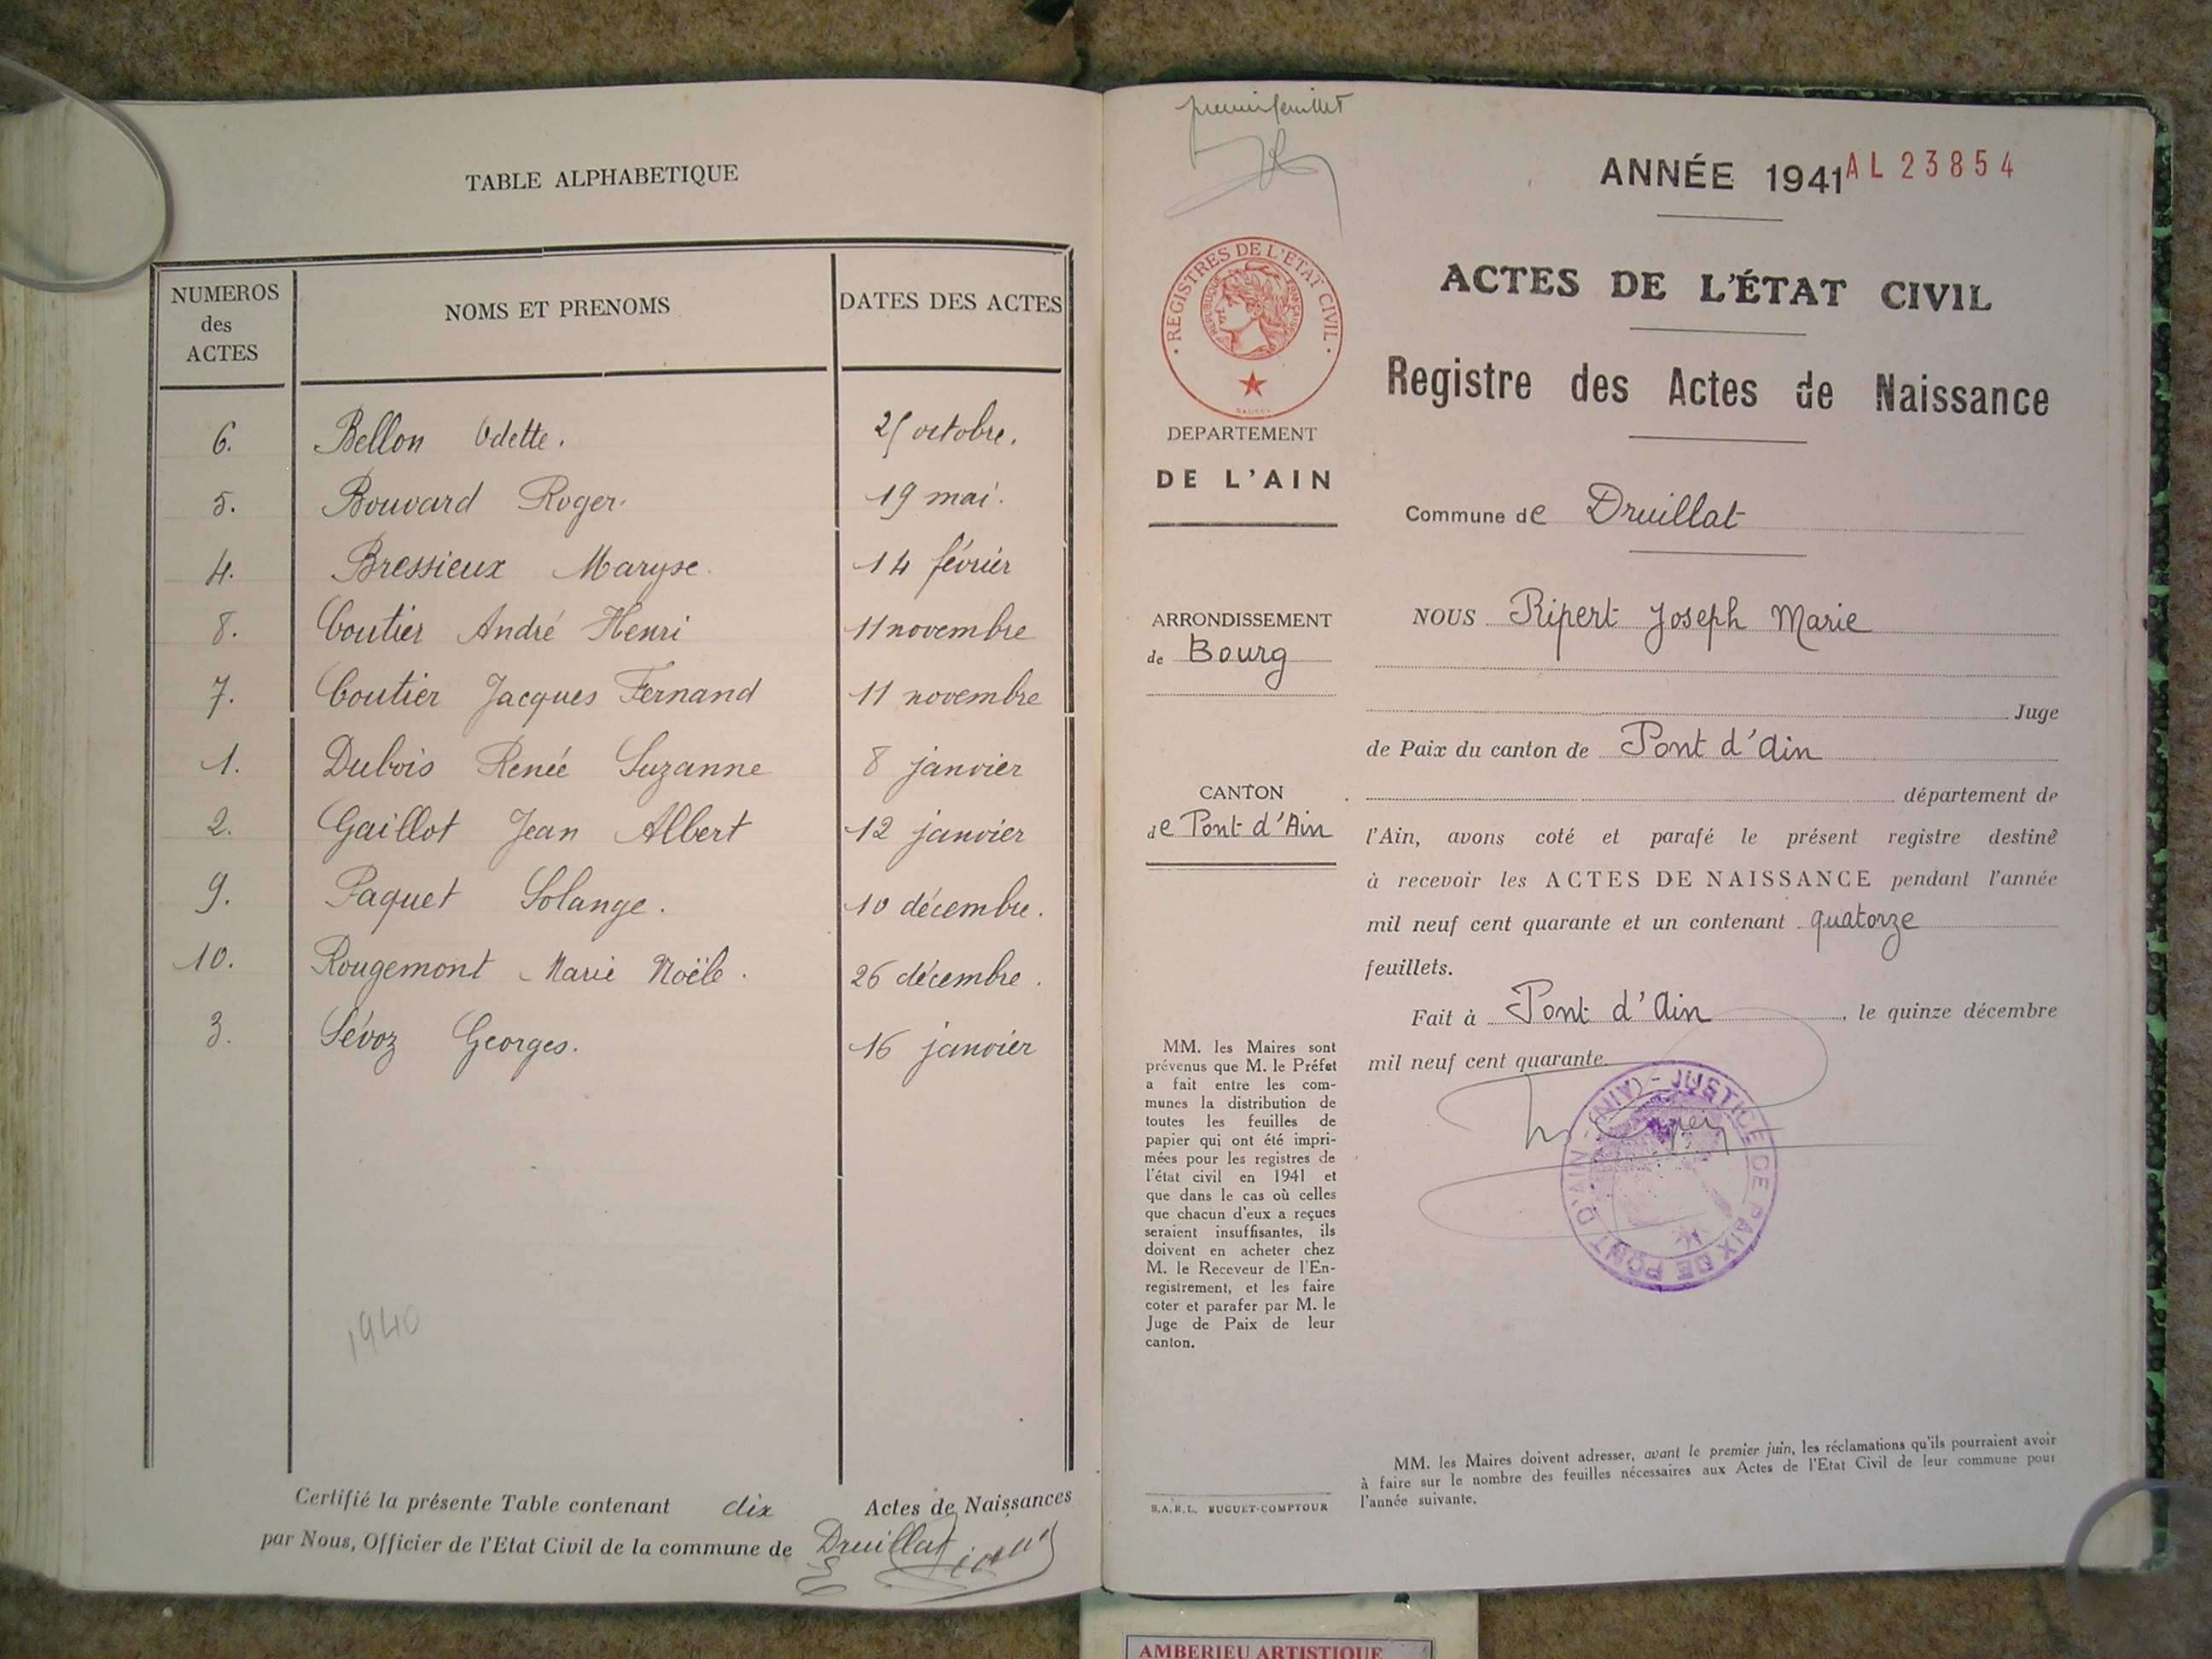 TABLE ALPHABETIQUE
NUMEROS des ACTES NOMS ET PRENOMS DATES DES ACTES
6. Bellon Odette. 25 octobre.
5. Bouvard Roger. 19 mai.
4. Bressieux Maryse. 14 février
8. Coutier André Henri 11 novembre
7. Coutier Jacques Fernand 11 novembre
1. Dubois Renée Suzanne 8 janvier
2. Gaillot Jean Albert 12 janvier
9. Paquet Solange. 10 décembre.
10. Rougemont Marie Noële. 26 décembre.
3. Sévoz Georges. 16 janvier
1940
Certifié la présente Table contenant dix Actes de Naissances
par Nous, Officier de l'Etat Civil de la commune de Druillat
premier feuillet
REGISTRES DE L'ÉTAT CIVIL
RÉPUBLIQUE FRANÇAISE
DEPARTEMENT
DE L'AIN
ARRONDISSEMENT
de Bourg
CANTON
de Pont d'Ain
MM. les Maires sont
prévenus que M. le Préfet
a fait entre les com-
munes la distribution de
toutes les feuilles de
papier qui ont été impri-
mées pour les registres de
l'état civil en 1941 et
que dans le cas où celles
que chacun d'eux a reçues
seraient insuffisantes, ils
doivent en acheter chez
M. le Receveur de l'En-
registrement, et les faire
coter et parafer par M. le
Juge de Paix de leur
canton.
S.A.R.L. BUGUET-COMPTOUR
ANNÉE 1941 AL 23854
ACTES DE L'ÉTAT CIVIL
Registre des Actes de Naissance
Commune de Druillat
NOUS Ripert Joseph Marie
Juge
de Paix du canton de Pont d'Ain
département de
l'Ain, avons coté et parafé le présent registre destiné
à recevoir les ACTES DE NAISSANCE pendant l'année
mil neuf cent quarante et un contenant quatorze
feuillets.
Fait à Pont d'Ain, le quinze décembre
mil neuf cent quarante.
JUSTICE DE PAIX DE PONT D'AIN - (AIN) -
MM. les Maires doivent adresser, avant le premier juin, les réclamations qu'ils pourraient avoir
à faire sur le nombre des feuilles nécessaires aux Actes de l'Etat Civil de leur commune pour
l'année suivante.
AMBERIEU ARTISTIQUE